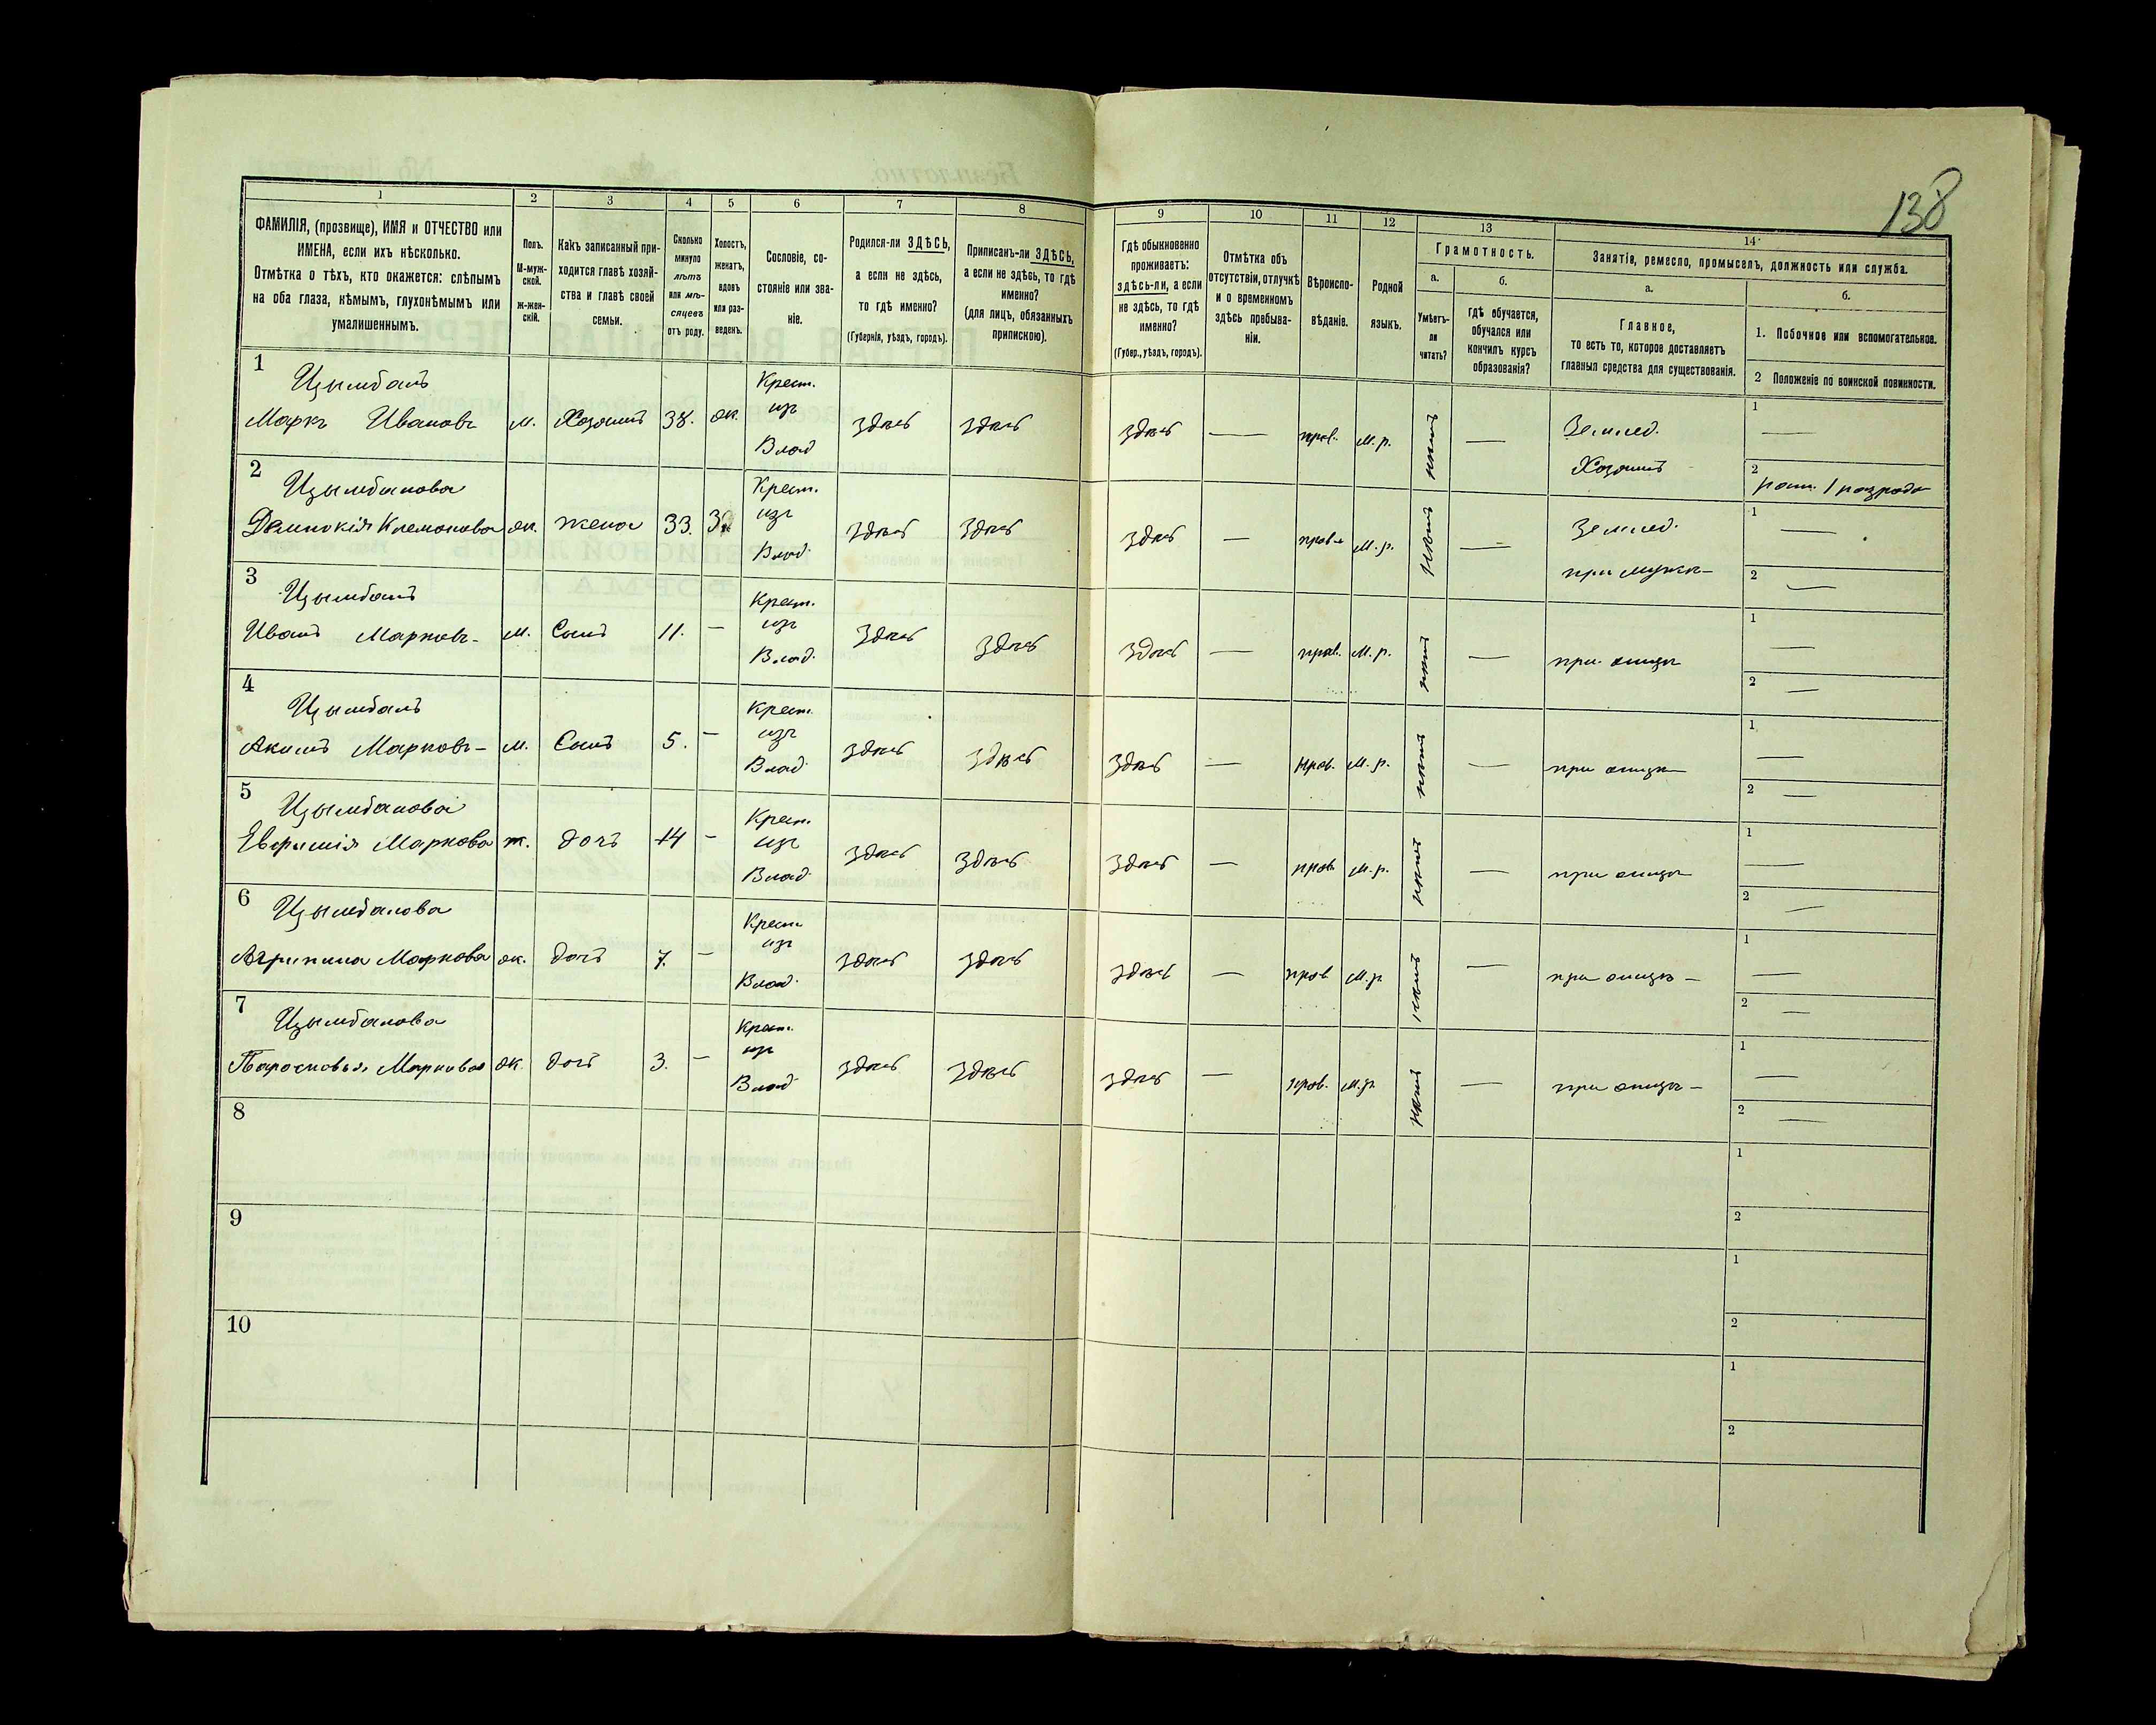 138
1 2 3 4 5 6 7 8 9 10 11 12 13 14
ФАМИЛІЯ, (прозвище), ИМЯ и ОТЧЕСТВО или
ИМЕНА, если ихъ нѣсколько.
Отмѣтка о тѣхъ, кто окажется: слѣпымъ
на оба глаза, нѣмымъ, глухонѣмымъ или
умалишеннымъ.
Полъ.
М-муж-
ской.
ж-жен-
скій.
Какъ записанный при-
ходится главѣ хозяй-
ства и главѣ своей
семьи.
Сколько
минуло
лѣтъ
или мѣ-
сяцевъ
отъ роду.
Холостъ,
женатъ,
вдовъ
или раз-
веденъ.
Сословіе, со-
стояніе или зва-
ніе.
Родился-ли ЗДѢСЬ,
а если не здѣсь,
то гдѣ именно?
(Губернія, уѣздъ, городъ).
Приписанъ-ли ЗДѢСЬ,
а если не здѣсь, то гдѣ
именно?
(для лицъ, обязанныхъ
припискою).
Гдѣ обыкновенно
проживаетъ:
здѣсь-ли, а если
не здѣсь, то гдѣ
именно?
(Губер., уѣздъ, городъ).
Отмѣтка объ
отсутствіи, отлучкѣ
и о временномъ
здѣсь пребыва-
ніи.
Вѣроиспо-
вѣданіе.
Родной
языкъ.
Грамотность.
а.
Умѣетъ-
ли
читать?
б.
гдѣ обучается,
обучался или
кончилъ курсъ
образованія?
Занятіе, ремесло, промыселъ, должность или служба.
а.
Главное,
то есть то, которое доставляетъ
главныя средства для существованія.
б.
1. Побочное или вспомогательное.
2 Положеніе по воинской повинности.
1 Цымбалъ Крест.
Маркъ Ивановъ м. Хозяинъ 38. ж. изъ здѣсь здѣсь здѣсь — прав. м.р. нѣтъ — Землед. 1 —
Влад Хозяинъ 2 ратн. 1 разряда
2 Цымбалова Крест.
Климонова ж. жена 33. З. изъ здѣсь здѣсь здѣсь — прав. м.р. нѣтъ — Землед. 1 —
Влад. при мужѣ — 2 —
3 Цымбалъ Крест.
Иванъ Марковъ - м. Сынъ 11. — изъ здѣсь здѣсь здѣсь — прав. м.р. нѣтъ — при отцѣ 1 —
Влад. 2 —
4 Цымбалъ Крест.
Акимъ Марковъ - м. Сынъ 5. — изъ здѣсь здѣсь здѣсь — прав. м.р. нѣтъ — при отцѣ 1 —
Влад. 2 —
5 Цымбалова Крест.
Маркова ж. дочь 14 — изъ здѣсь здѣсь здѣсь — прав. м.р. нѣтъ — при отцѣ 1 —
Влад. 2 —
6 Цымбалова Крест.
Агрипина Маркова ж. дочь 7. — изъ здѣсь здѣсь здѣсь — прав. м.р. нѣтъ — при отцѣ — 1 —
Влад. 2 —
7 Цымбалова Крест.
Парасковья Маркова ж. дочь 3. — изъ здѣсь здѣсь здѣсь — прав. м.р. нѣтъ — при отцѣ — 1 —
Влад 2 —
8 1
2
9 1
2
10 1
2